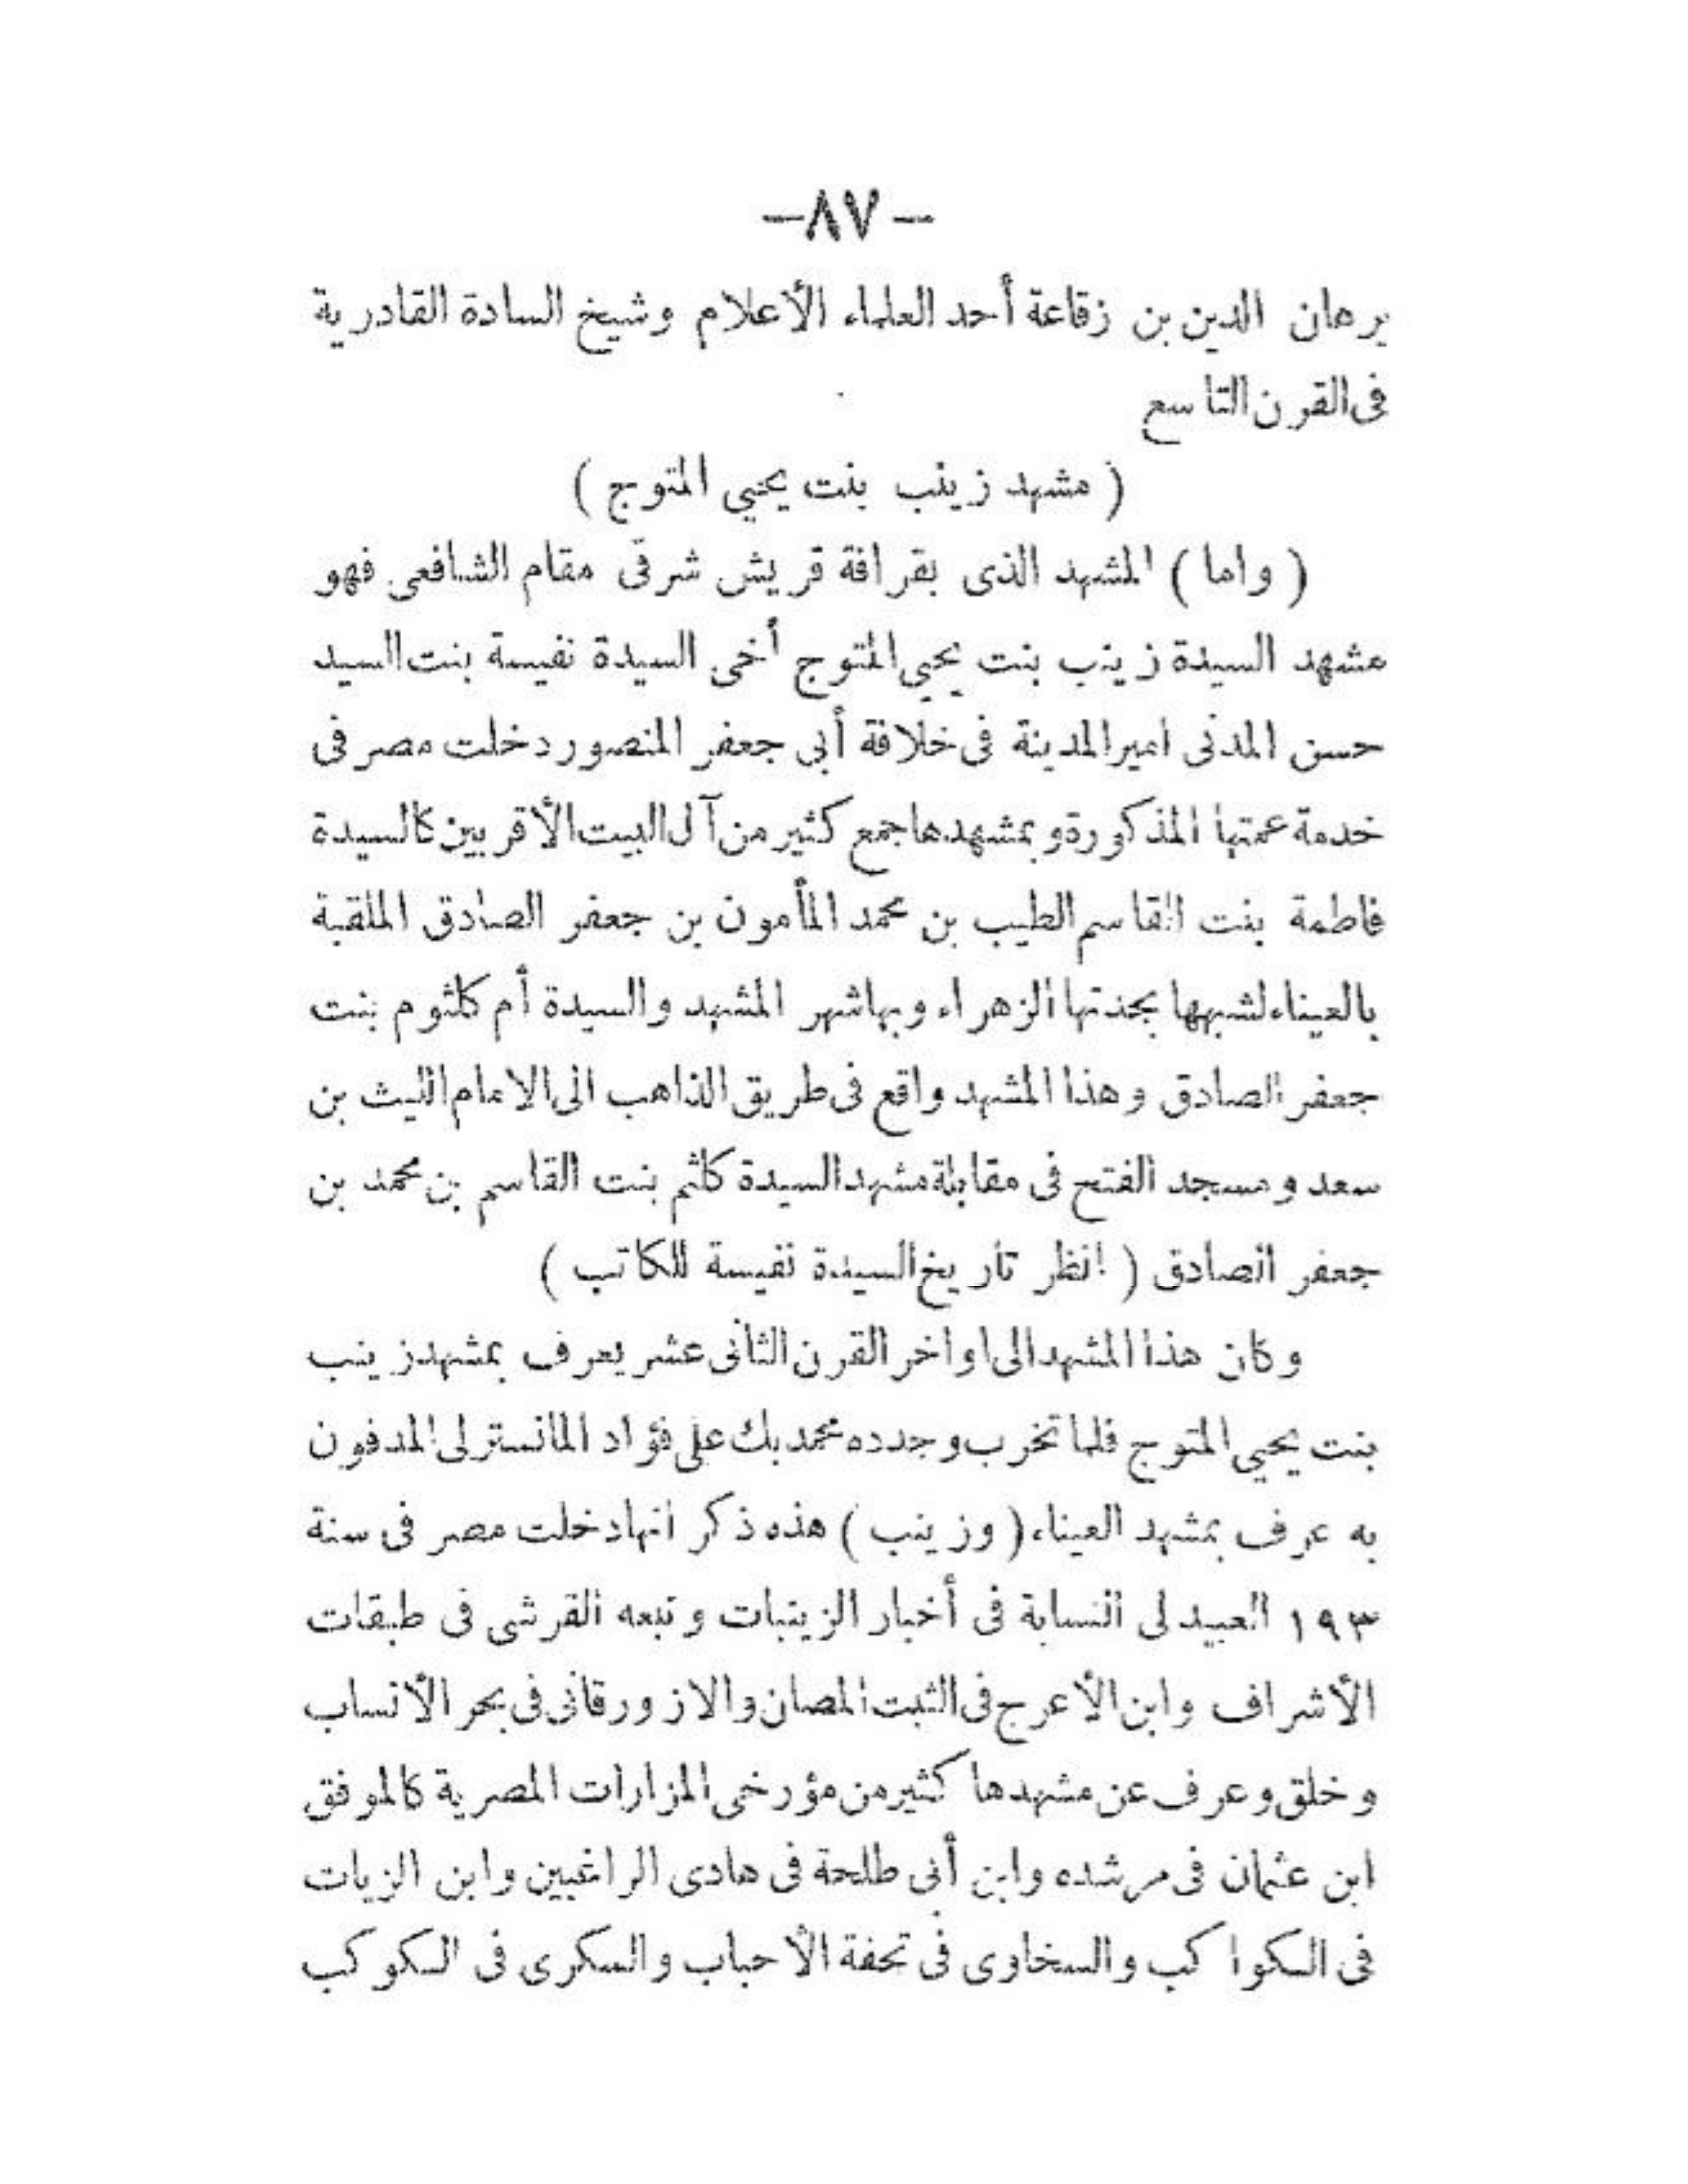 —٨٧—
برهان الدين بن زقاعة أحد العلماء الأعلام وشيخ السادة القادرية
فى القرن التاسع
( مشهد زينب بنت يحيي المتوج )
( واما ) المشهد الذى بقرافة قريش شرقى مقام الشافعى فهو
مشهد السيدة زينب بنت يحيي المتوج أخى السيدة نفيسة بنت السيد
حسن المدنى امير المدينة فى خلافة أبى جعفر المنصور دخلت مصر فى
خدمة عمتها المذكورة وبمشهدها جمع كثير من آل البيت الأقربين كالسيدة
فاطمة بنت القاسم الطيب بن محمد المأمون بن جعفر الصادق الملقبة
بالعيناء لشبهها بجدتها الزهراء وبها شهر المشهد والسيدة أم كلثوم بنت
جعفر الصادق وهذا المشهد واقع فى طريق الذاهب الى الامام الليث بن
سعد ومسجد الفتح فى مقابلة مشهد السيدة كلثم بنت القاسم بن محمد بن
جعفر الصادق ( انظر تاريخ السيدة نفيسة للكاتب )
وكان هذا المشهد الى اواخر القرن الثانى عشر يعرف بمشهد زينب
بنت يحيي المتوج فلما تخرب وجدده محمد بك على فؤاد المانسترلى المدفون
به عرف بمشهد العيناء ( وزينب ) هذه ذكر انها دخلت مصر فى سنة
١٩٣ العبيدلى النسابة فى أخبار الزينبات وتبعه القرشى فى طبقات
الأشراف وابن الأعرج فى الثبت المصان والازورقانى فى بحر الأنساب
وخلق وعرف عن مشهدها كثير من مؤرخى المزارات المصرية كالموفق
ابن عثمان فى مرشده وابن أبى طلحة فى هادى الراغبين وابن الزيات
فى الكواكب والسخاوى فى تحفة الأحباب والسكرى فى الكوكب